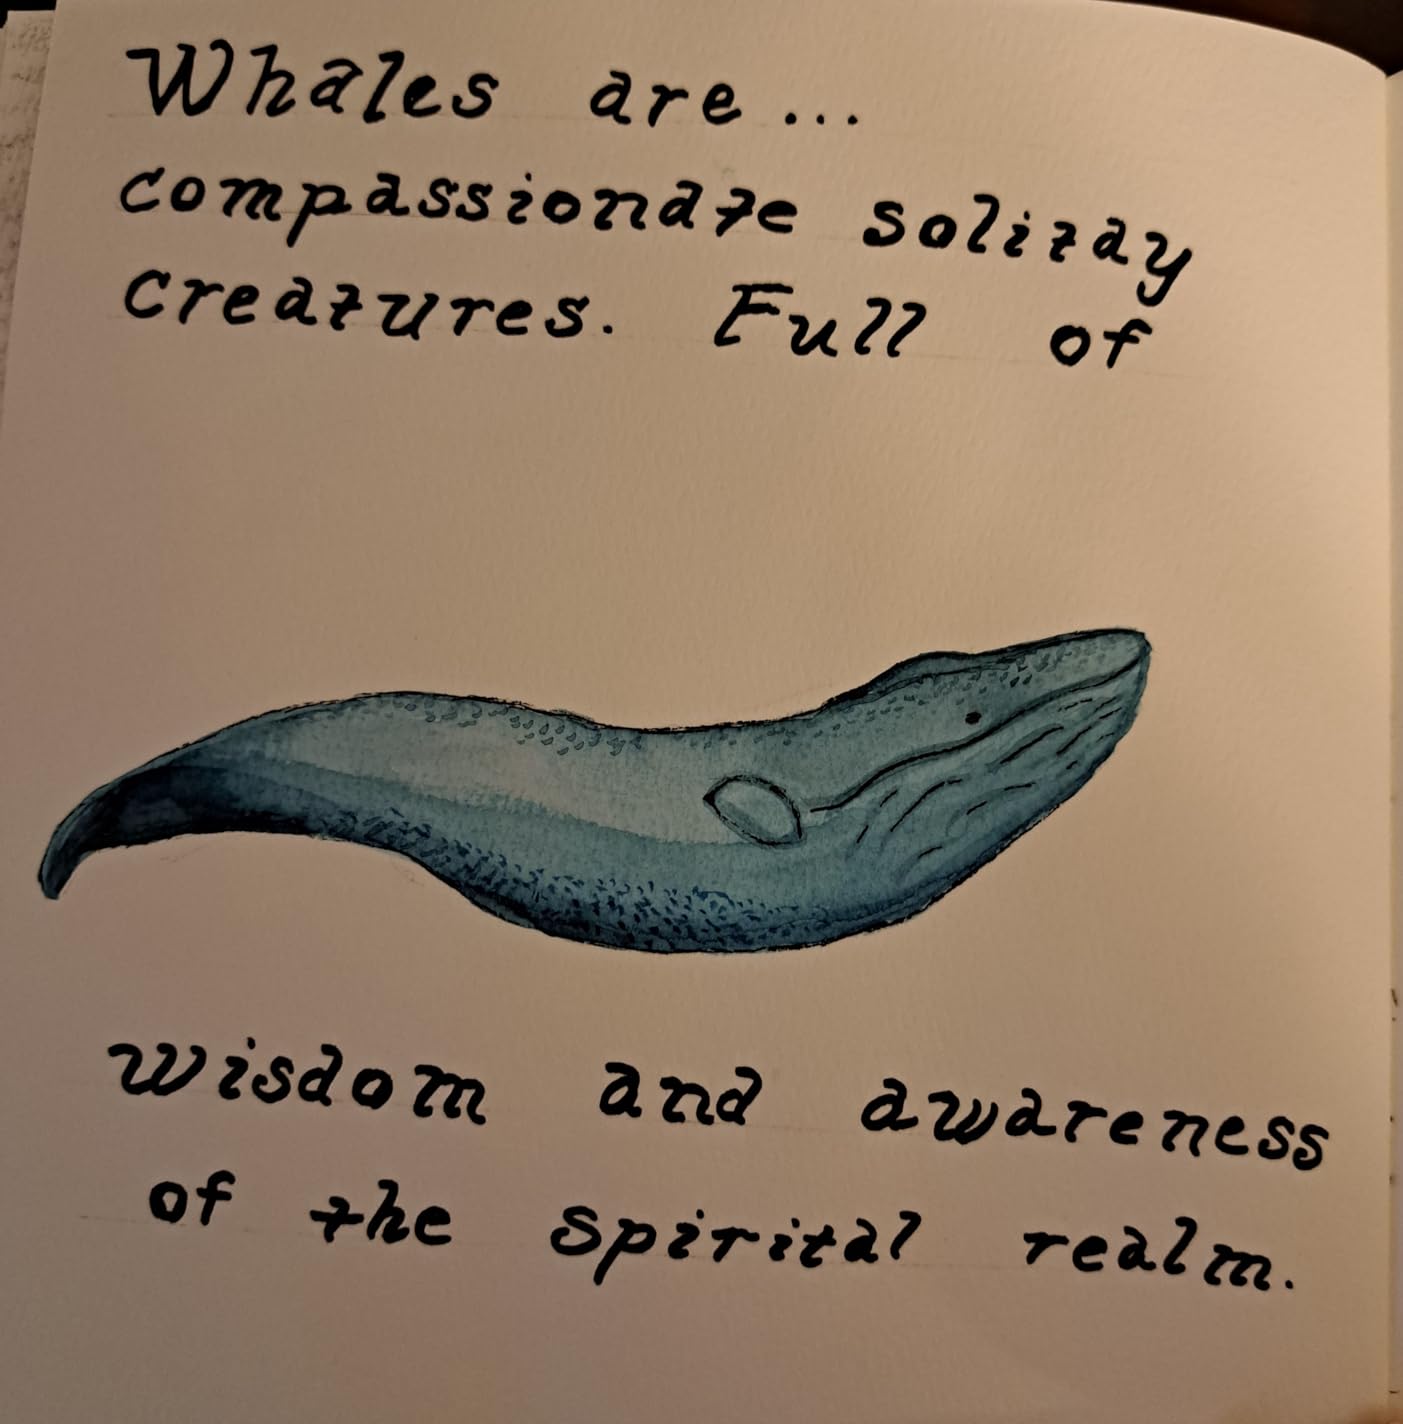 Whales are...
compassionate solitay
creatures. Full of
wisdom and awareness
of the spirital realm.